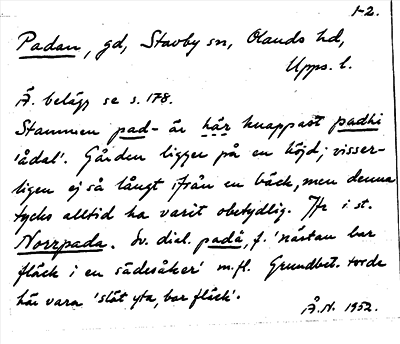 1-2.
Padan, gd, Stavby sn, Olands hd,
Upps. l.
Ä. belägg se s. 178.
Stammen pad- är här knappast padhi
'ådal'. Gården ligger på en höjd; visser-
ligen ej så långt ifrån en bäck, men denna
tycks alltid ha varit obetydlig. Jfr i st.
Norrpada. Sv. dial. padå, f. 'nästan bar
fläck i en sädesåker' m.fl. Grundbet. torde
här vara 'slät yta, bar fläck'.
Å.N. 1952.